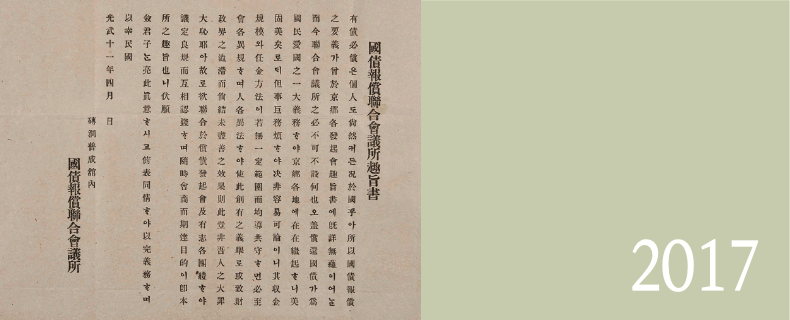 國債報償聯合會議所趣旨書
有債必償은個人도尙然커든況於國乎아所以國債報償
之要義가曾於京鄕各發起會趣旨書에旣詳無蘊이어늘
而今聯合會議所之必不可不設何也오盖償還國債가當
國民愛國之一大義務ᄒᆞ야京鄕各地에在在繼起ᄒᆞ니美
固美矣로ᄃᆡ但事巨務煩ᄒᆞ야决非容易可論이니其収金
規模와任金方法이若無一定範圍而均遵共守ᄒᆞ면必至
會各異規ᄒᆞ며人各異法ᄒᆞ야使此創有之義擧로或致財
政界之流滯而結未盡善之效果則此豈非吾人之大罪
大恥耶아故로玆欲聯合於償債發起會及有志各團體ᄒᆞ야
議定良規而互相認ᄒᆞ며隨時會商而期達目的이卽本
所之趣旨也니伏願
僉君子ᄂᆞᆫ亮此眞意ᄒᆞ시고俯表同情ᄒᆞ야以完義務ᄒᆞ며
以幸民國
光武十一年四月 日
磚洞普成館內
國債報償聯合會議所
2017